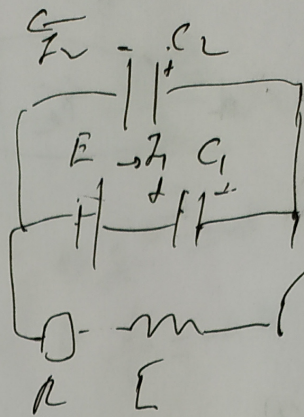 - C₂
+
E → I₁ C₁
+ +
R L